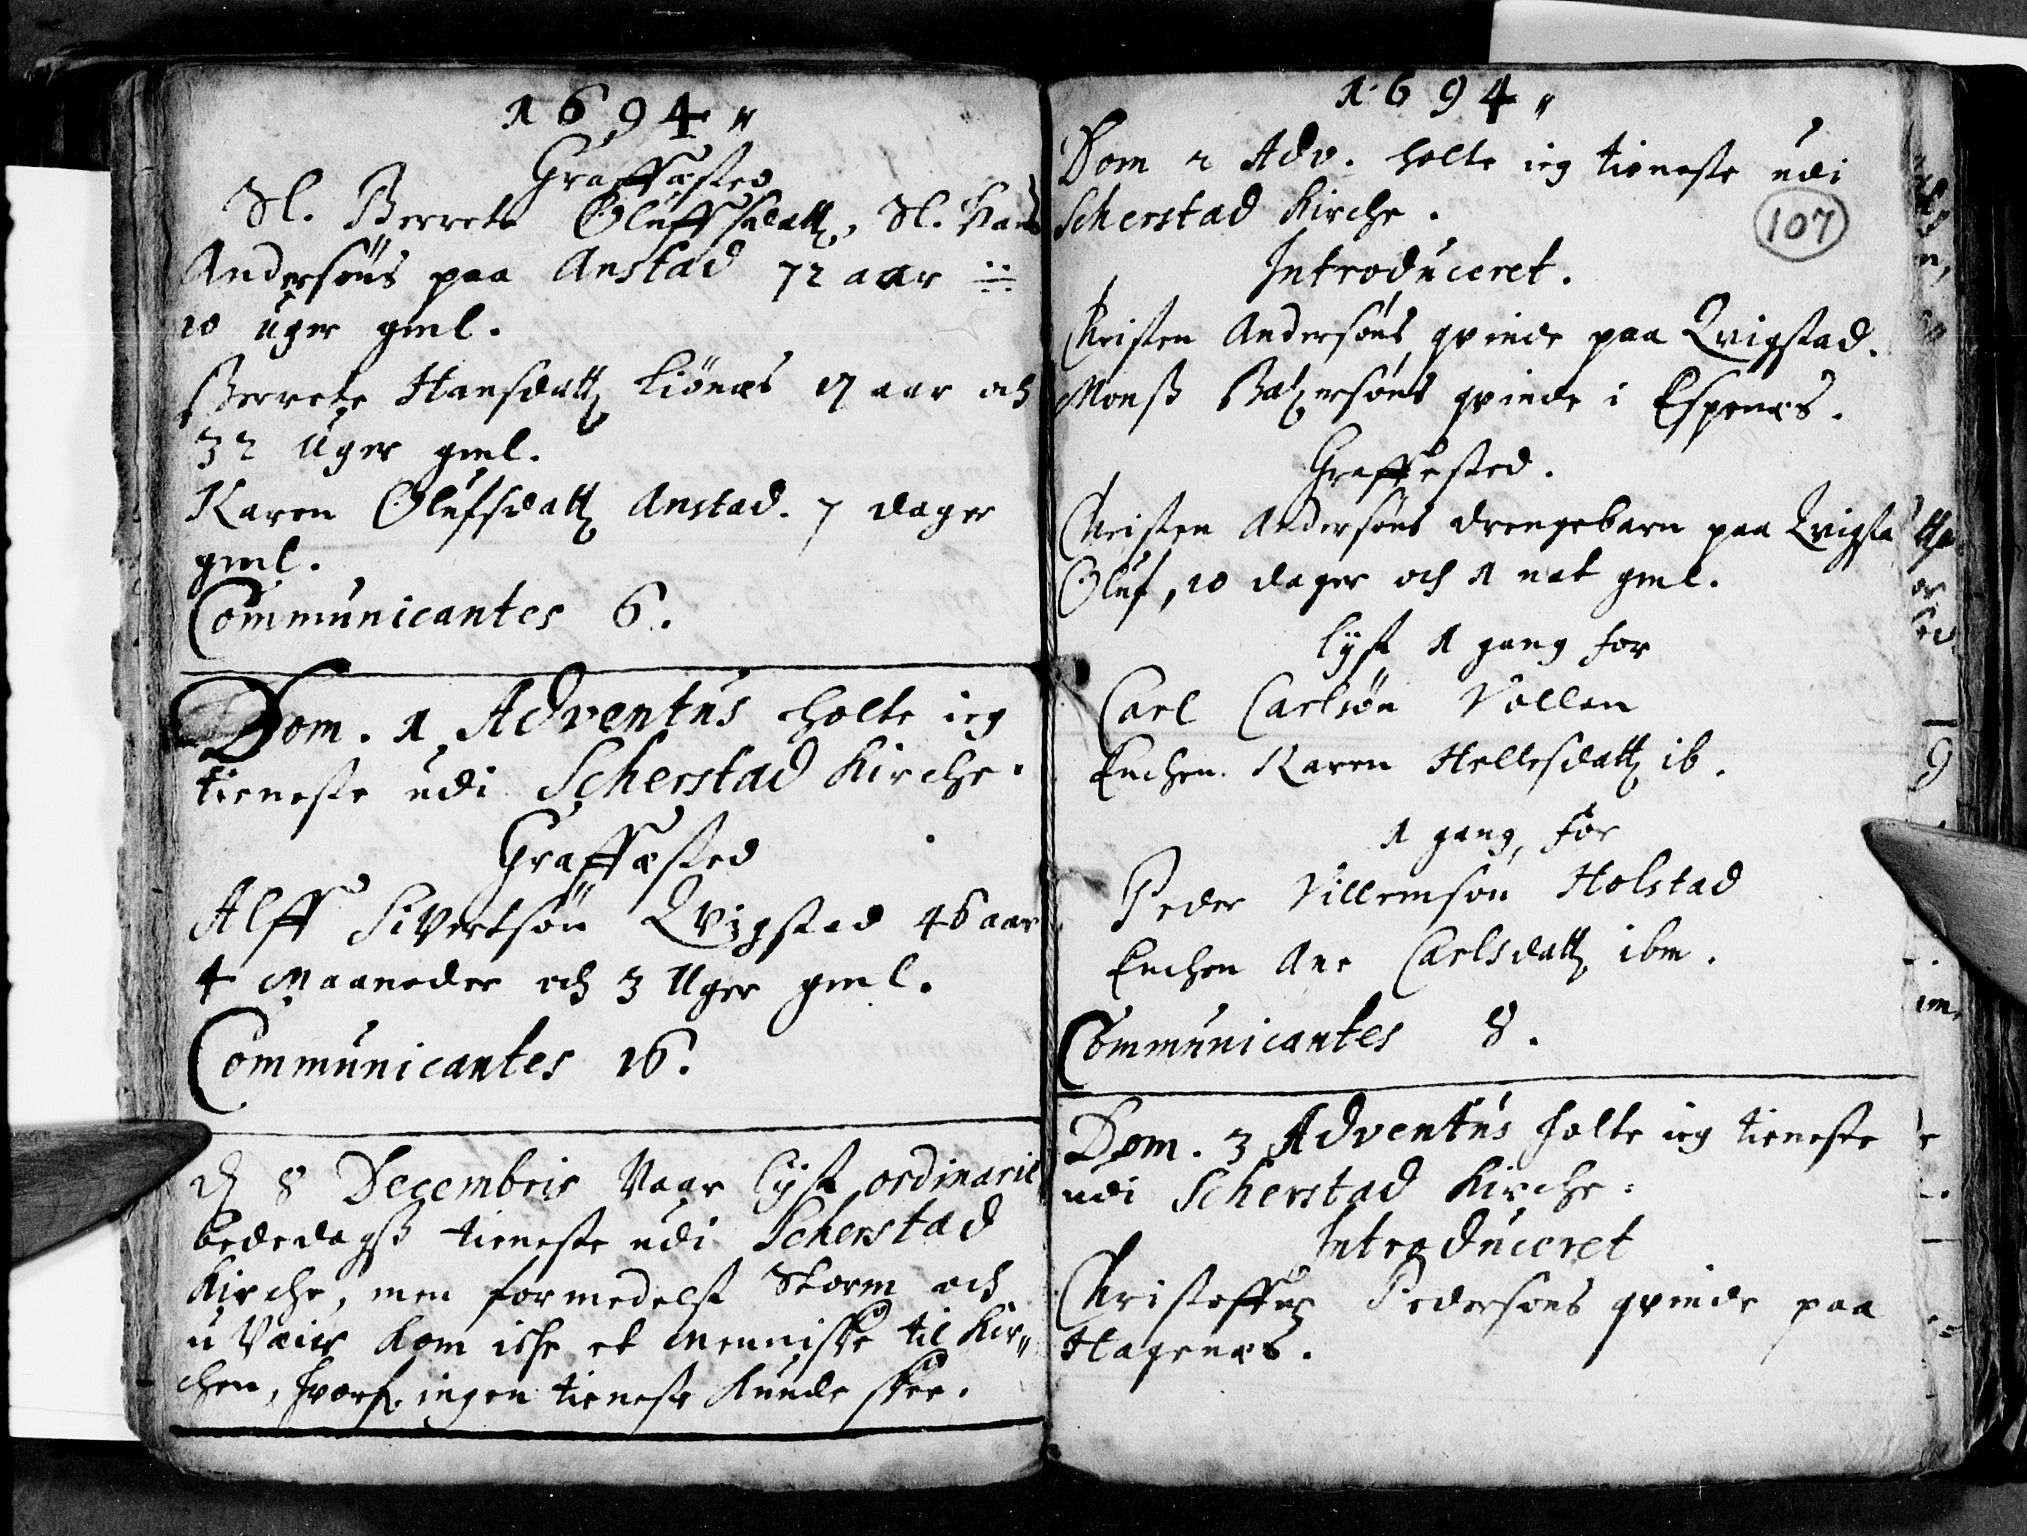 1694 "
Graffæsted
Sl. Berrete Oluffsdatt, Sl. Hans
Andersöns paa Anstad 72 aar
10 uger gml.
Berrete Hansdatt Liönæs 17 aar och
32 Uger gml.
Karen Olufsdatt Anstad. 7 dager
gml.
Communicantes 6.
Dom. 1 Adventus holte ieg
tieneste udi Scherstad Kirche.
Graffæsted
Alff Sivertsön Qvigstad 46 aar
4 Maaneder och 3 Uger gml.
Communicantes 16.
8 Decembris Vaar lyst ordinarie
bededagß tieneste udi Scherstad
Kirche, men formedelst Storm och
u Væir kom iche et Menniske til Kir"
chen, hvorf. ingen tieneste kunde skee.
1694 "
Dom 2 Adv. holte ieg tieneste udi
Scherstad Kirche.
107
Introduceret.
Christen Andersöns qvinde paa Qvigstad.
Monß Baltzersöns qvinde i Espenæs.
Graffested.
Christen Andersöns drengebarn paa Qvigsta
Oluf, 10 dager och 1 nat gml.
lyst 1 gang for
Carl Carlsön Vollen
Enchen. Karen Hellesdatt ib.
1 gang, for
Peder Villemson Holstad
Enchen Ane Carlsdatt ibm.
Communicantes 8.
Dom. 3 Adventus holte ieg tieneste
udi Scherstad Kirche:
Introduceret
Christoffer Pedersøns qvinde paa
Hagenæs.